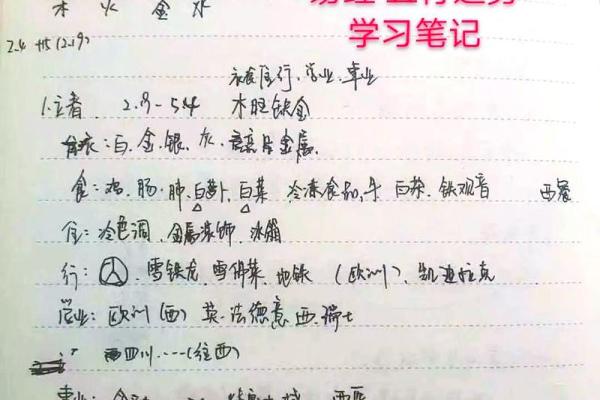 木 火 金 水
学习笔记
2.4 (2.19)
衣食住行、学业、事业
1.立春 2.9-5.4 木旺缺金
衣:白、金、银、灰、金属、
食:鸡、肠、肺、白萝卜、白菜 冷冻食品、牛 白茶、铁观音 西餐
住:冷色调、金属装饰、冰箱
行: 雪铁龙、雪佛莱、地铁(欧洲)、凯迪拉克
学业:欧洲(西) 英、法德意西、瑞士
四川....(往西)
事业: